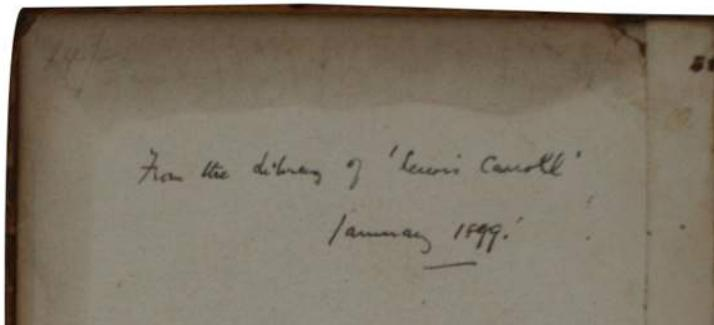 From the Library of 'Lewis Carroll'
January 1899.